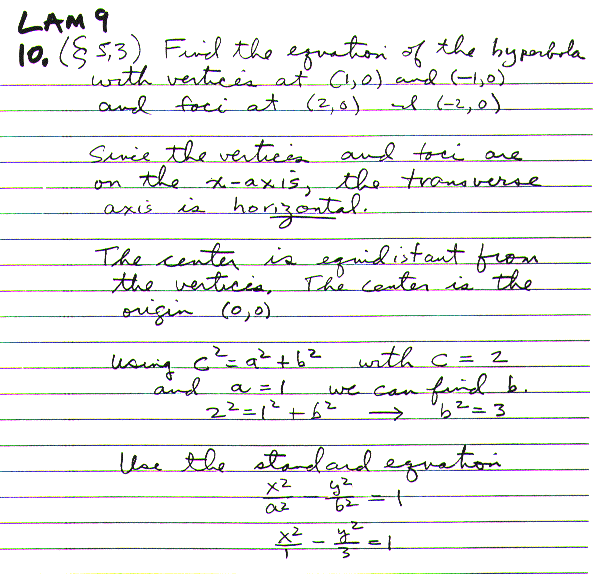 LAM 9
10. (§ 5,3) Find the equation of the hyperbola
with vertices at (1,0) and (-1,0)
and foci at (2,0) and (-2,0)
Since the vertices and foci are
on the x-axis, the transverse
axis is horizontal.
The center is equidistant from
the vertices. The center is the
origin (0,0)
Using c² = a² + b² with c = 2
and a = 1 we can find b.
2² = 1² + b² → b² = 3
Use the standard equation
x²/a² - y²/b² = 1
x²/1 - y²/3 = 1